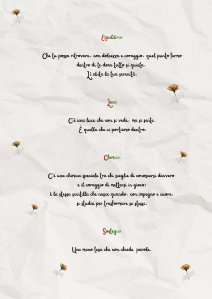 Equilibrio
Che tu possa ritrovare, con dolcezza e coraggio, quel punto fermo
dentro di te dove tutto si quieta.
Lì abita la tua serenità.
Luce
C'è una luce che non si vede, ma si sente.
È quella che ci portiamo dentro.
Chimica
C'è una chimica speciale tra chi sceglie di conoscersi davvero
e il coraggio di mettersi in gioco:
è la stessa scintilla che nasce quando, con impegno e cuore,
si studia per trasformare se stessi.
Sostegno
Una mano tesa che non chiede parole.